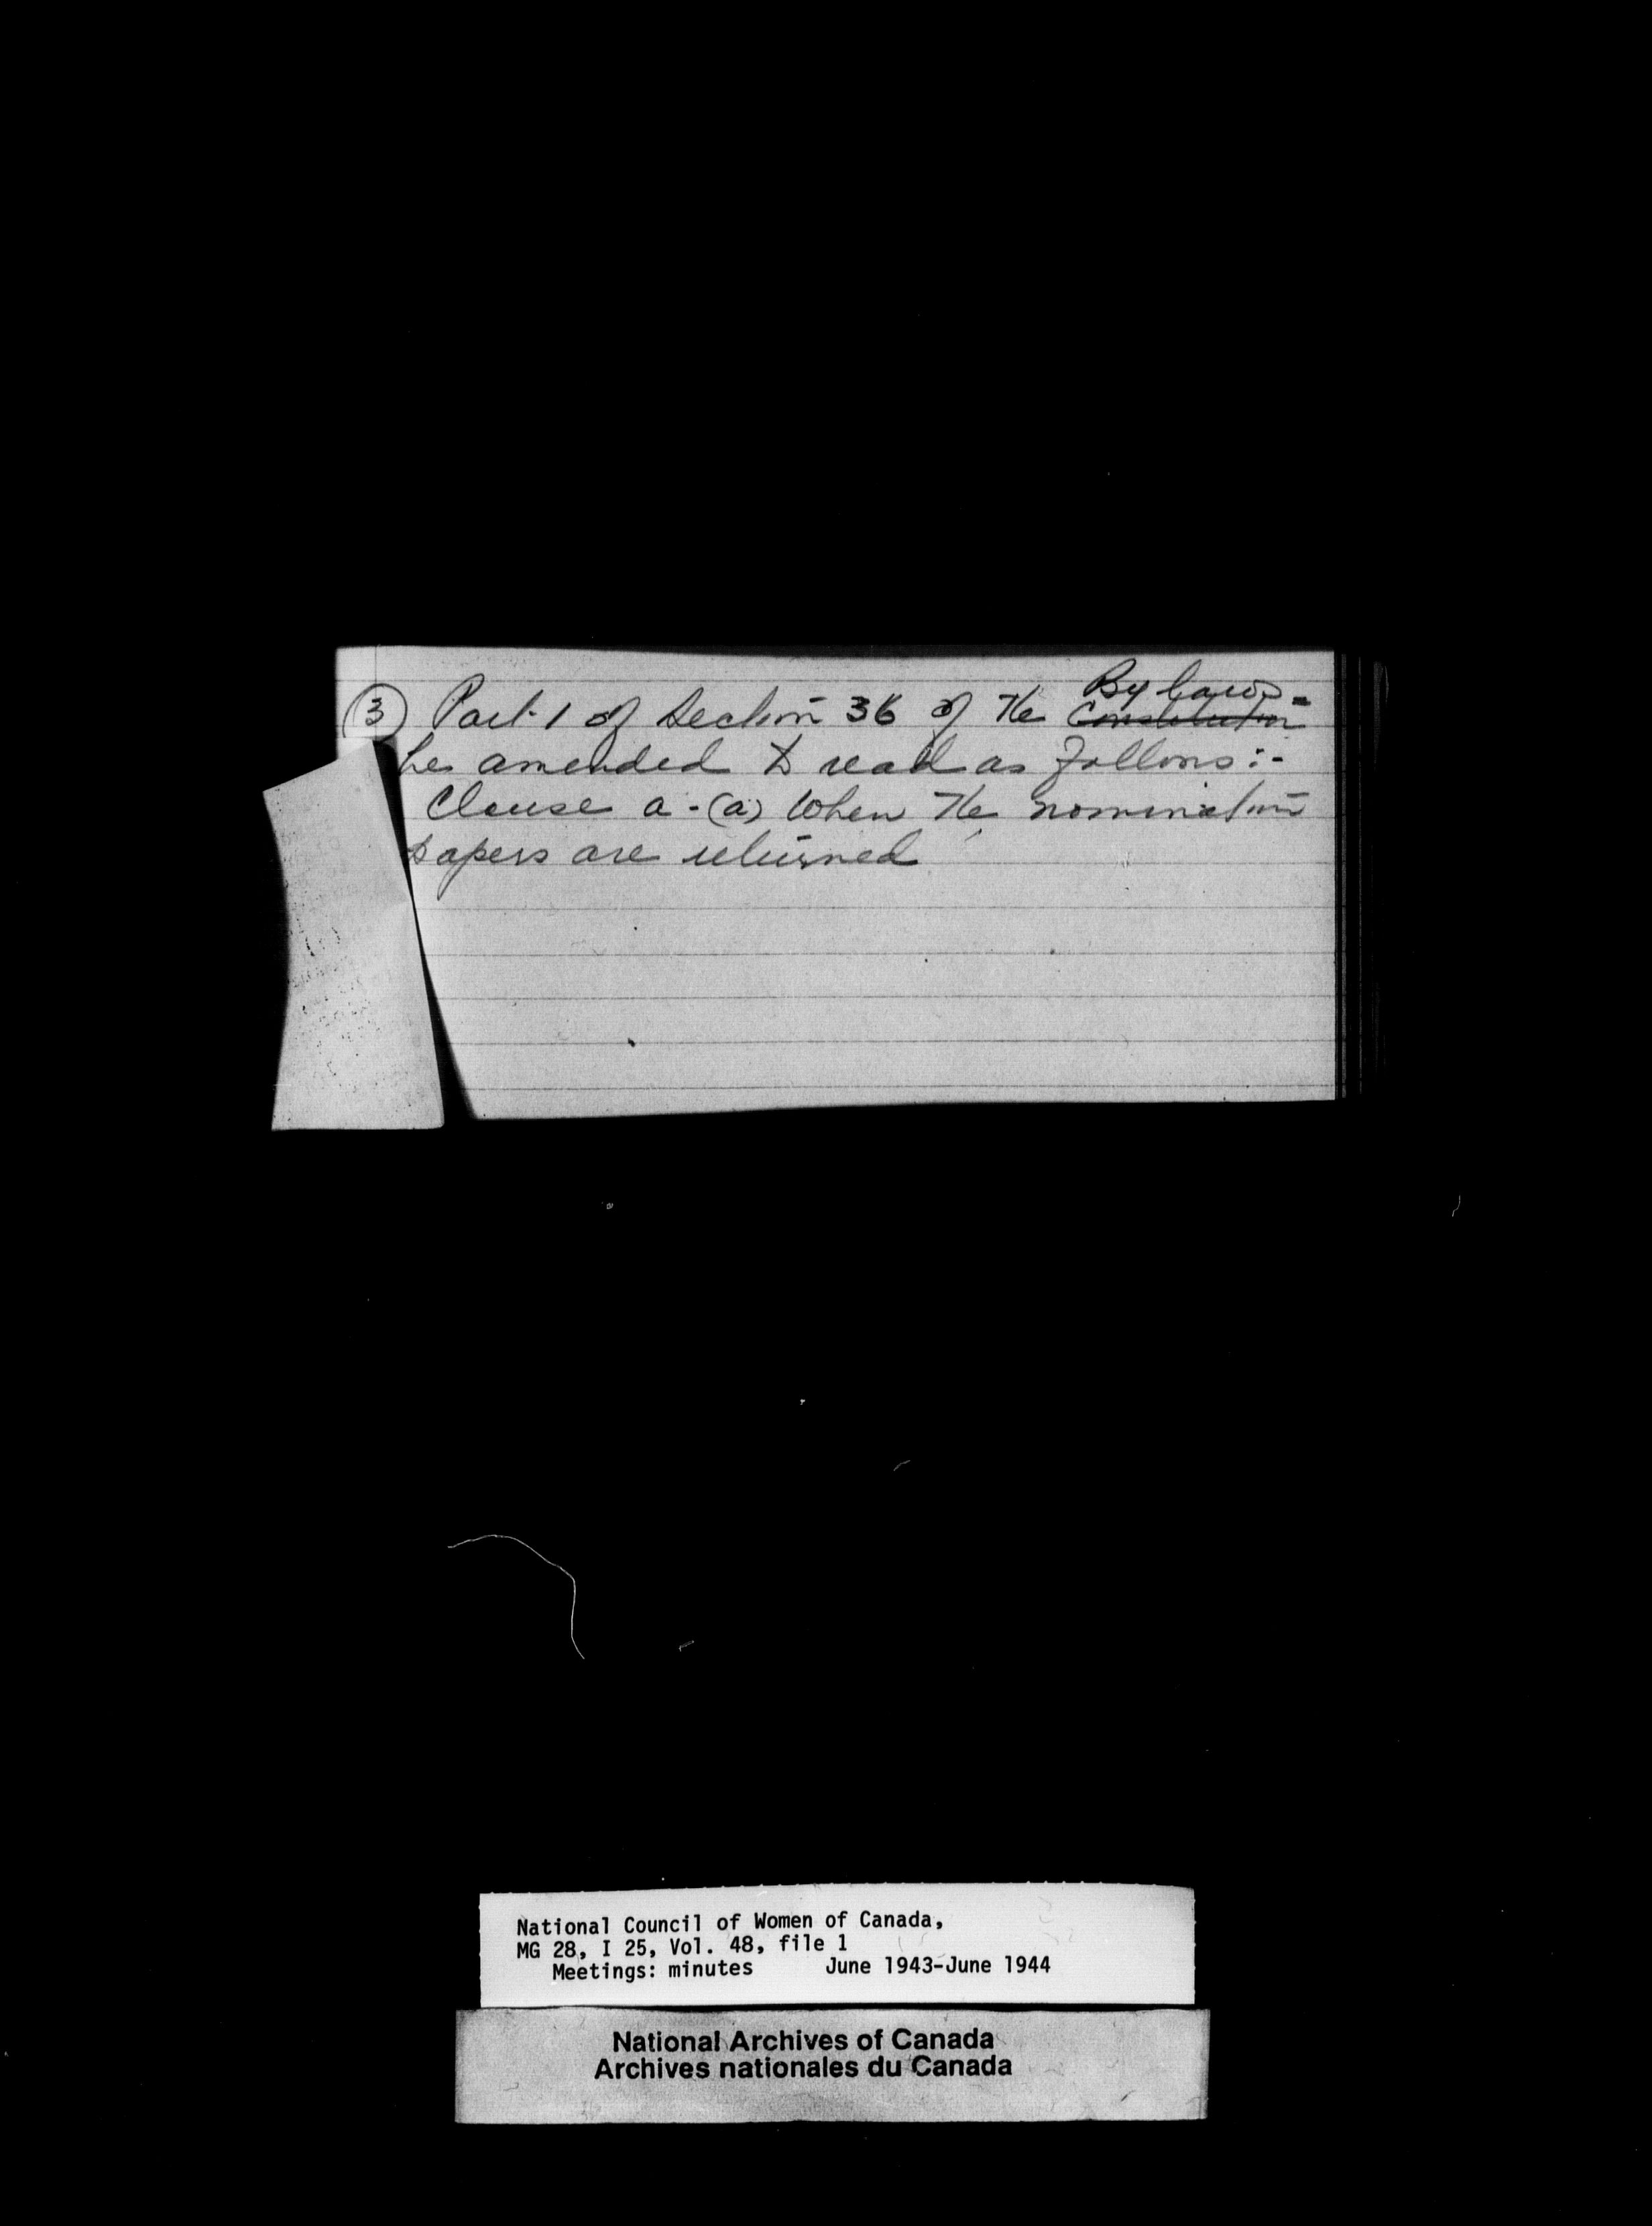 By Laws -
③ Part 1 of Section 36 of the Constitution
be amended to read as follows:-
Clause a - (a) When the nomination
papers are returned
National Council of Women of Canada,
MG 28, I 25, Vol. 48, file 1
Meetings: minutes June 1943-June 1944
National Archives of Canada
Archives nationales du Canada